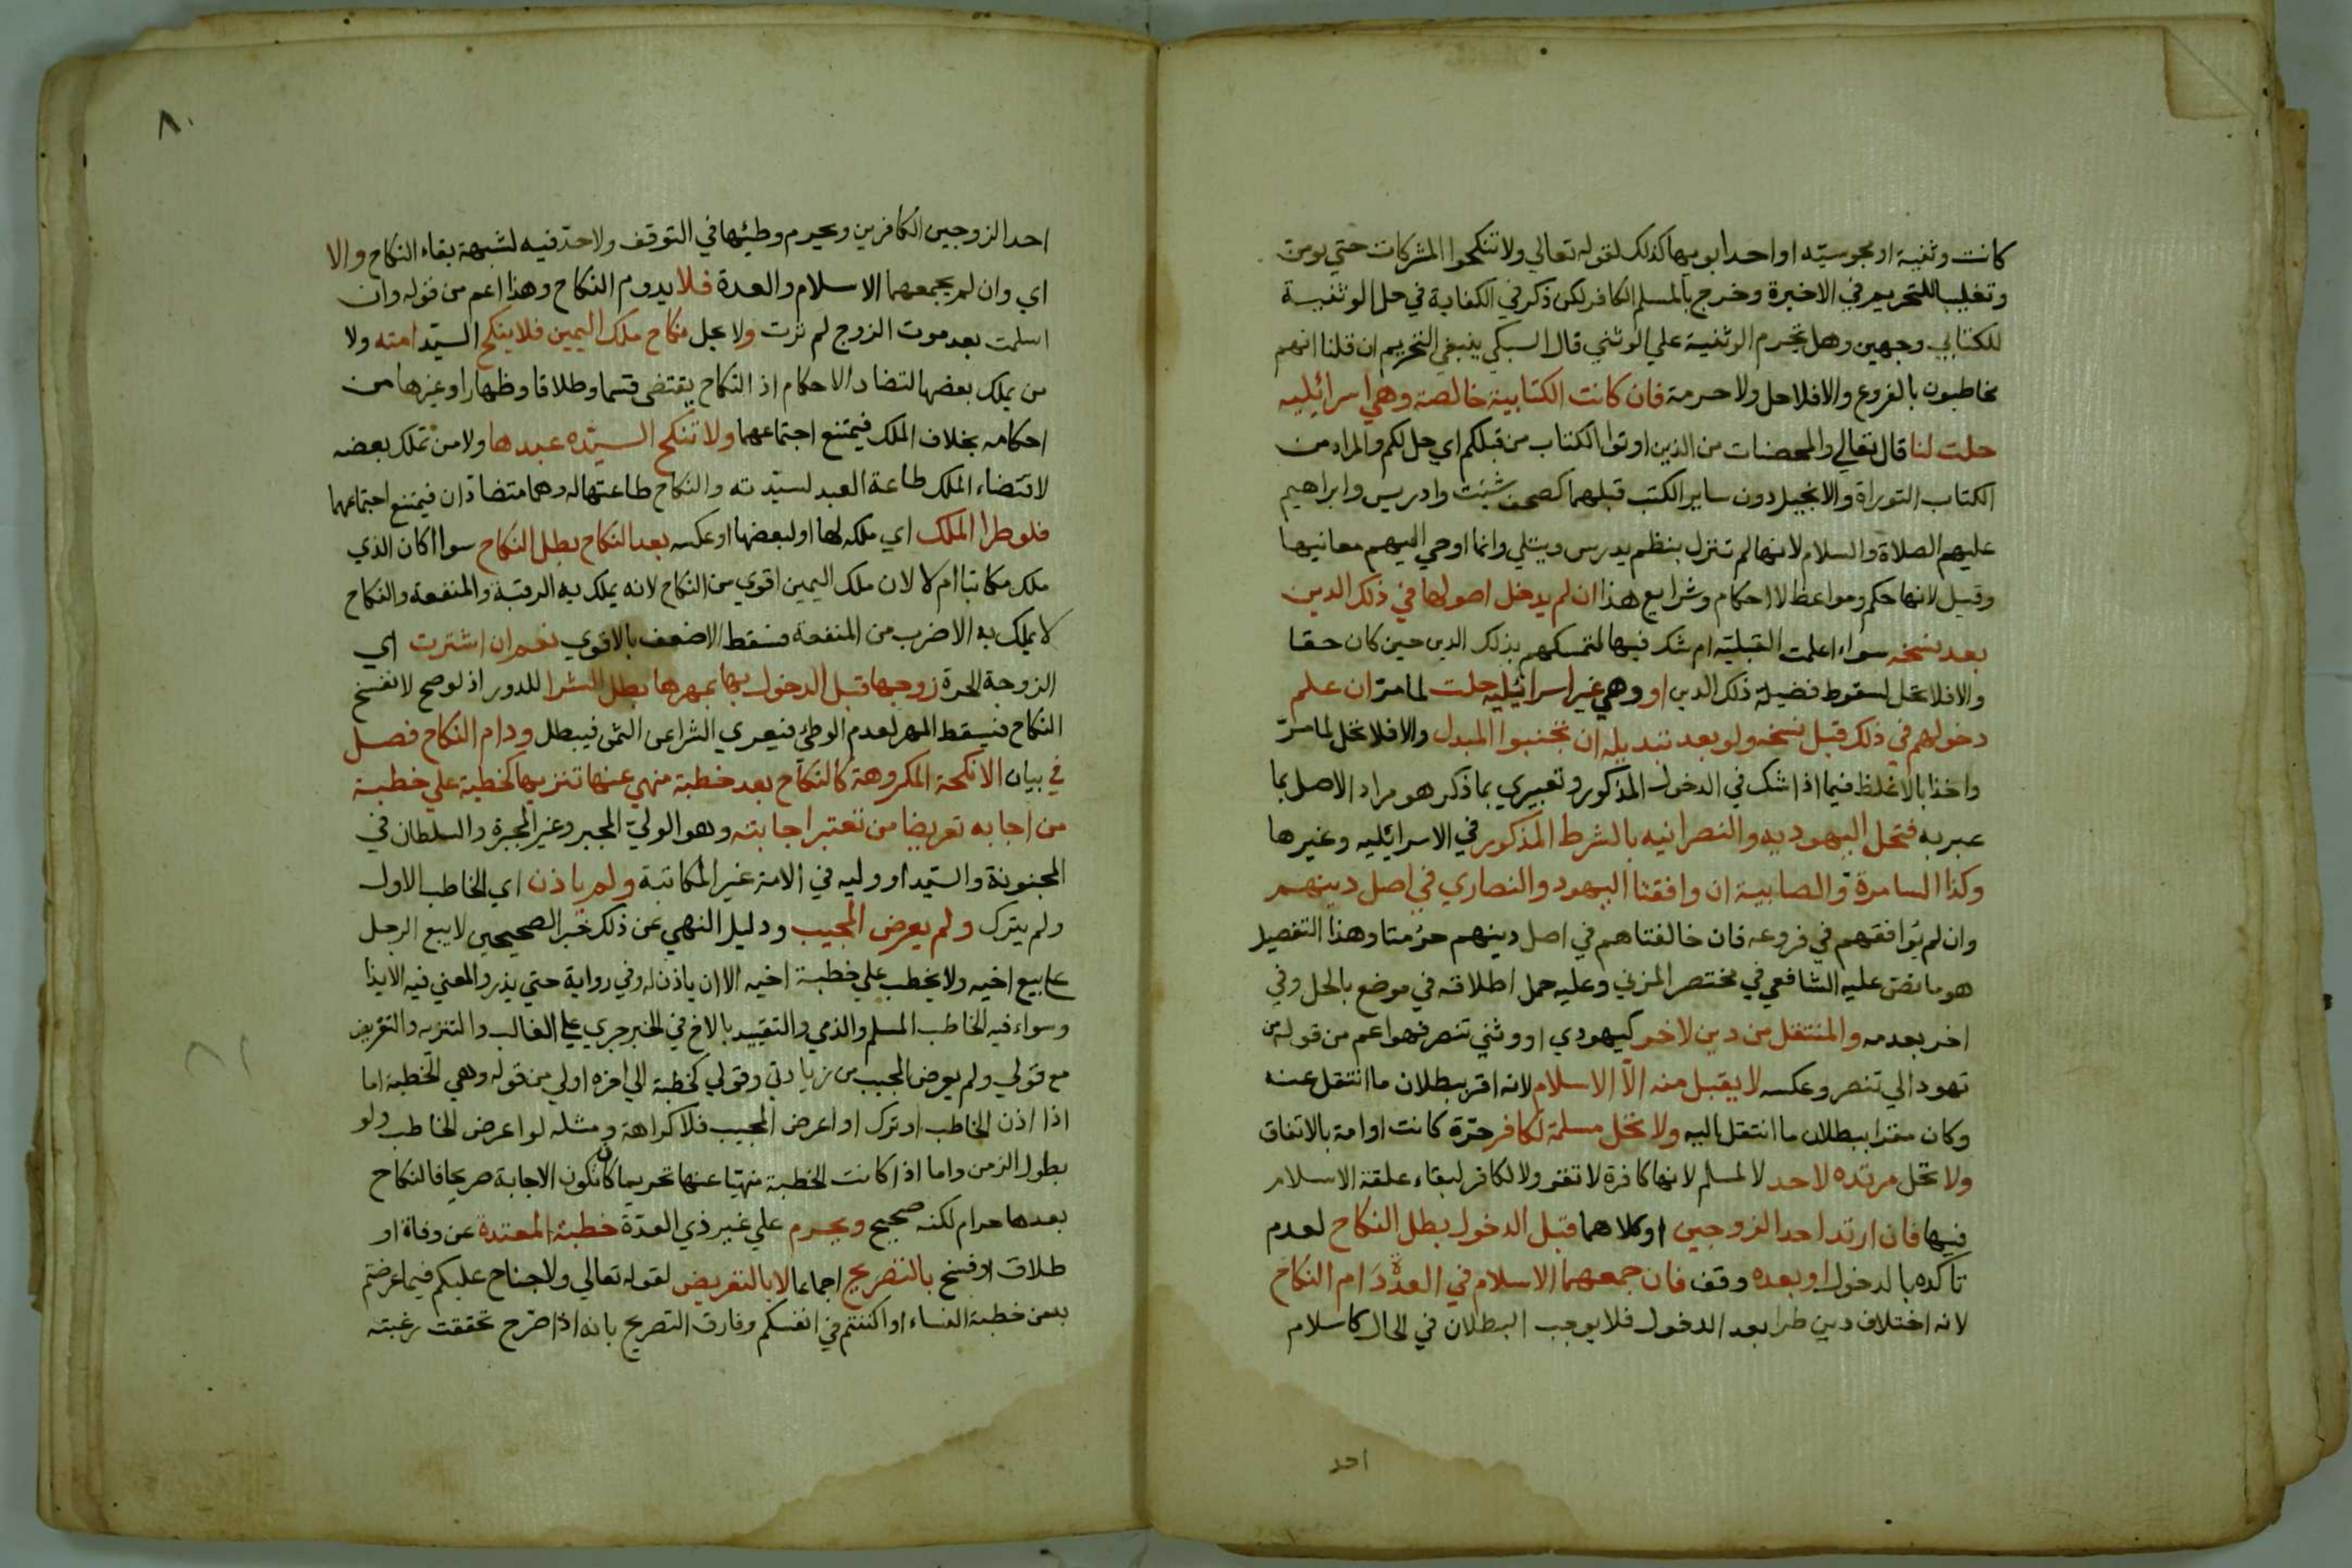 كانت وثنية او مجوسيّه او احد ابويها كذلك لقوله تعالي ولا تنكحوا المشركات حتي يومن
وتغليبا للتحريم في الاخيرة وخرج بالمسلم الكافر لكن ذكر في الكفاية في حل الوثنيـة
للكتابي وجهين وهل تحرم الوثنية علي الوثني قال السبكي ينبغي التحريم ان قلنا انهم
مخاطبون بالفروع والا فلا حل ولا حرمة فان كانت الكتابية خالصة وهي اسرائيليه
حلت لنا قال تعالي والمحصنات من الذين اوتوا الكتاب من قبلكم اي حل لكم والمراد من
الكتاب التوراة والانجيل دون ساير الكتب قبلهما كصحف شيث وادريس وابراهيم
عليهم الصلاة والسلام لانها لم تنزل بنظم يدرس ويتلي وانما اوحي اليهم معانيها
وقيل لانها حكم ومواعظ لا احكام وشرايع هذا ان لم يدخل اصولها في ذلك الدين
بعد نسخه سواء اعلمت القبليّه ام شك فيها لتمسكهم بذلك الدين حين كان حقا
والا فلا تحل لسقوط فضيلة ذلك الدين او وهي غير اسرائيليه حلت لما مرّ ان علم
دخولهم في ذلك قبل نسخه ولو بعد تبديله ان تجنبوا المبدل والا فلا تحل لما مرّ
واخذا بالاغلظ فيما اذا شك في الدخول المذكور وتعبيري بما ذكر هو مراد الاصل بما
عبر به فتحل اليهوديه والنصرانيه بالشرط المذكور في الاسرائيليه وغيرها
وكذا السامرة والصابية ان وافقتا اليهود والنصاري في اصل دينهم
وان لم يوافقهم في فروعه فان خالفتاهم في اصل دينهم حرُمتا وهذا التفصيل
هو ما نص عليه الشافعي في مختصر المزني وعليه حمل اطلاقه في موضع بالحل وفي
اخر بعدمه والمنتقل من دين لاخر كيهودي او وثني تنصر فهو اعم من قوله من
تهود الي تنصر وعكسه لا يقبل منه الّا الاسلام لانه اقر ببطلان ما انتقل عنه
وكان مقرا ببطلان ما انتقل اليه ولا تحل مسلمة لكافر حرّة كانت او امة بالاتفاق
ولا تحل مرتده لاحد لا لمسلم لانها كافرة لا تقر ولا لكافر لبقاء علقة الاسلام
فيها فان ارتد احد الزوجين او كلاهما قبل الدخول بطل النكاح لعدم
تاكده بالدخول او بعده وقف فان جمعهما الاسلام في العدّة دَام النكاح
لانه اختلاف دين طرا بعد الدخول فلا يوجب البطلان في الحال كاسلام
احد
٨٠
احد الزوجين الكافرين ويحرم وطيُها في التوقف ولا حدّ فيه لشبهة بقاء النكاح والا
اي وان لم يجمعهما الاسلام والعدة فلا يدوم النكاح وهذا اعم من قوله وان
اسلمت بعد موت الزوج لم ترث ولا يحل نكاح ملك اليمين فلا ينكح السيّد امته ولا
من يملك بعضها لتضاد الاحكام اذ النكاح يقتضي قسما وطلاقا وظهارا وغيرها من
احكامه بخلاف الملك فيمتنع اجتماعهما ولا تنكح السيّده عبدها ولا من تملك بعضه
لاقتضاء الملك طاعة العبد لسيّدته والنكاح طاعتها له وهما متضادّان فيمتنع اجتماعهما
فلو طرا الملك اي ملكه لها او لبعضها او عكسه بعد النكاح بطل النكاح سوا اكان الذي
ملك مكاتبا ام لا لان ملك اليمين اقوي من النكاح لانه يملك به الرقبة والمنفعة والنكاح
لا يملك به الا ضرب من المنفعة فسقط الاضعف بالاقوي نعم ان اشترت اي
الزوجة الحرة زوجها قبل الدخول بها بمهرها بطل الشرا للدور اذ لو صح لانفسخ
النكاح فيسقط المهر لعدم الوطئ فيعري الشرا عن الثمن فيبطل ودام النكاح فصل
في بيان الانكحة المكروهة كالنكاح بعد خطبة منهي عنها تنزيها كخطبة علي خطبة
من اجابه تعريضا من تعتبر اجابته وهو الوليّ المجبر وغير المجبرة والسلطان في
المجنونة والسيّد او وليه في الامة غير المكاتبة ولم ياذن اي الخاطب الاول
ولم يترك ولم يعرض المجيب ودليل النهي عن ذلك خبر الصحيحين لا يبع الرجل
علي بيع اخيه ولا يخطب علي خطبة اخيه الا ان ياذن له وفي رواية حتي يذر والمعني فيه الايذا
وسواء فيه الخاطب المسلم والذمي والتقييد بالاخ في الخبر جري علي الغالب والتنزيه والتعريض
مع قولي ولم يعرض المجيب من زيادتي وقولي كخطبة الي اخره اولي من قوله وهي الخطبة اما
اذا اذن الخاطب او ترك او اعرض المجيب فلا كراهة ومثله لو اعرض الخاطب ولو
بطول الزمن واما اذا كانت الخطبة منهيّا عنها تحريما كان تكون الاجابة صريحا فالنكاح
بعدها حرام لكنه صحيح ويحرم علي غير ذي العدّة خطبة المعتدة عن وفاة او
طلاق او فسخ بالتصريح اجماعا لا بالتعريض لقوله تعالي ولا جناح عليكم فيما عرضتم
به من خطبة النساء او اكننتم في انفسكم وفارق التصريح بانه اذا صرّح تحققت رغبته